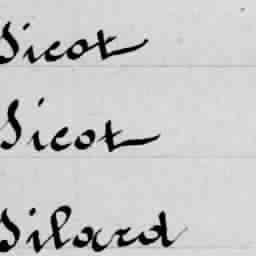 Sicot
Sicot
Silard